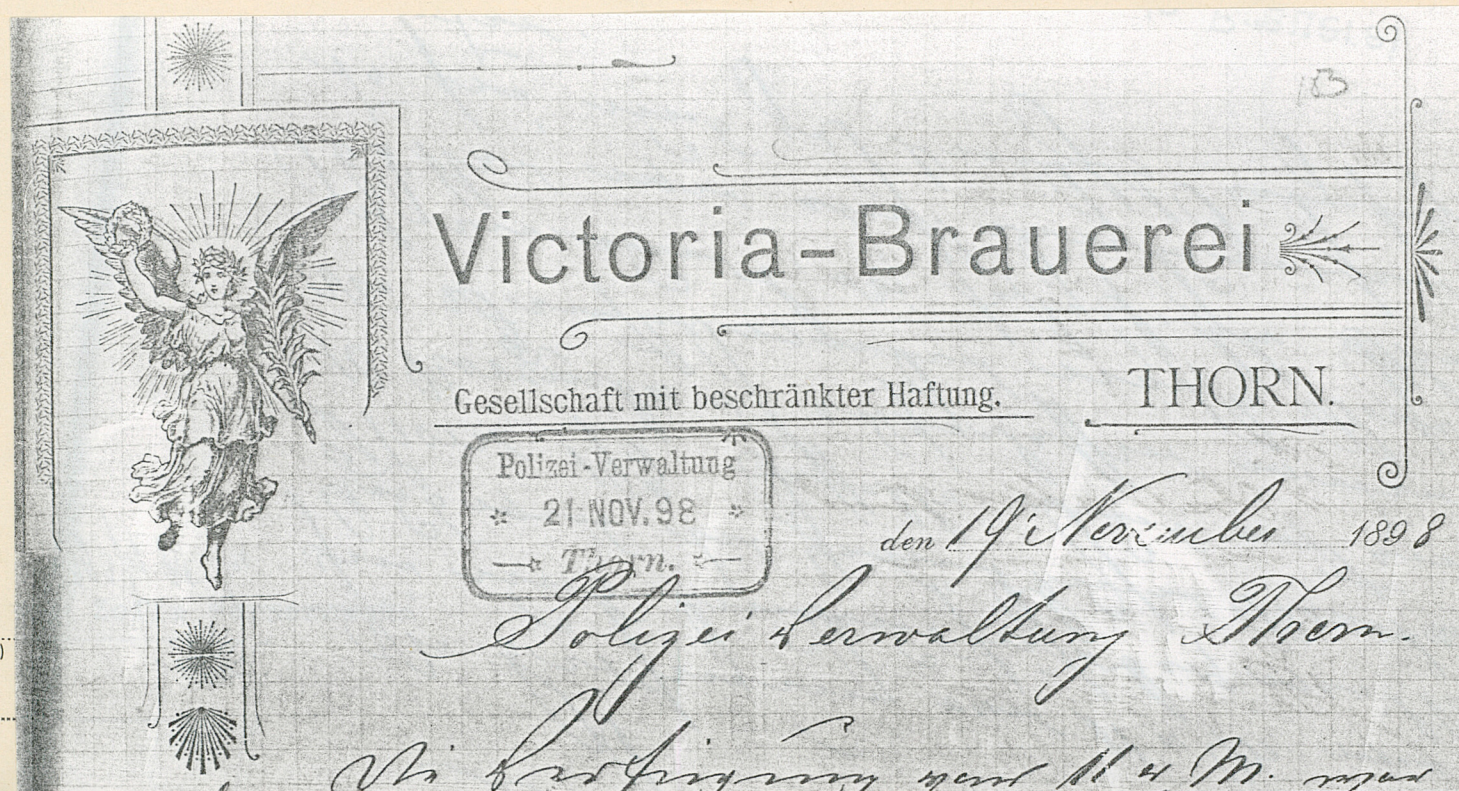 Victoria-Brauerei
Gesellschaft mit beschränkter Haftung.
THORN.
Polizei-Verwaltung
21 NOV. 98
Thorn.
den 19 November 1898
Polizei Verwaltung Thorn.
Die Verfügung vom 11 d M. war